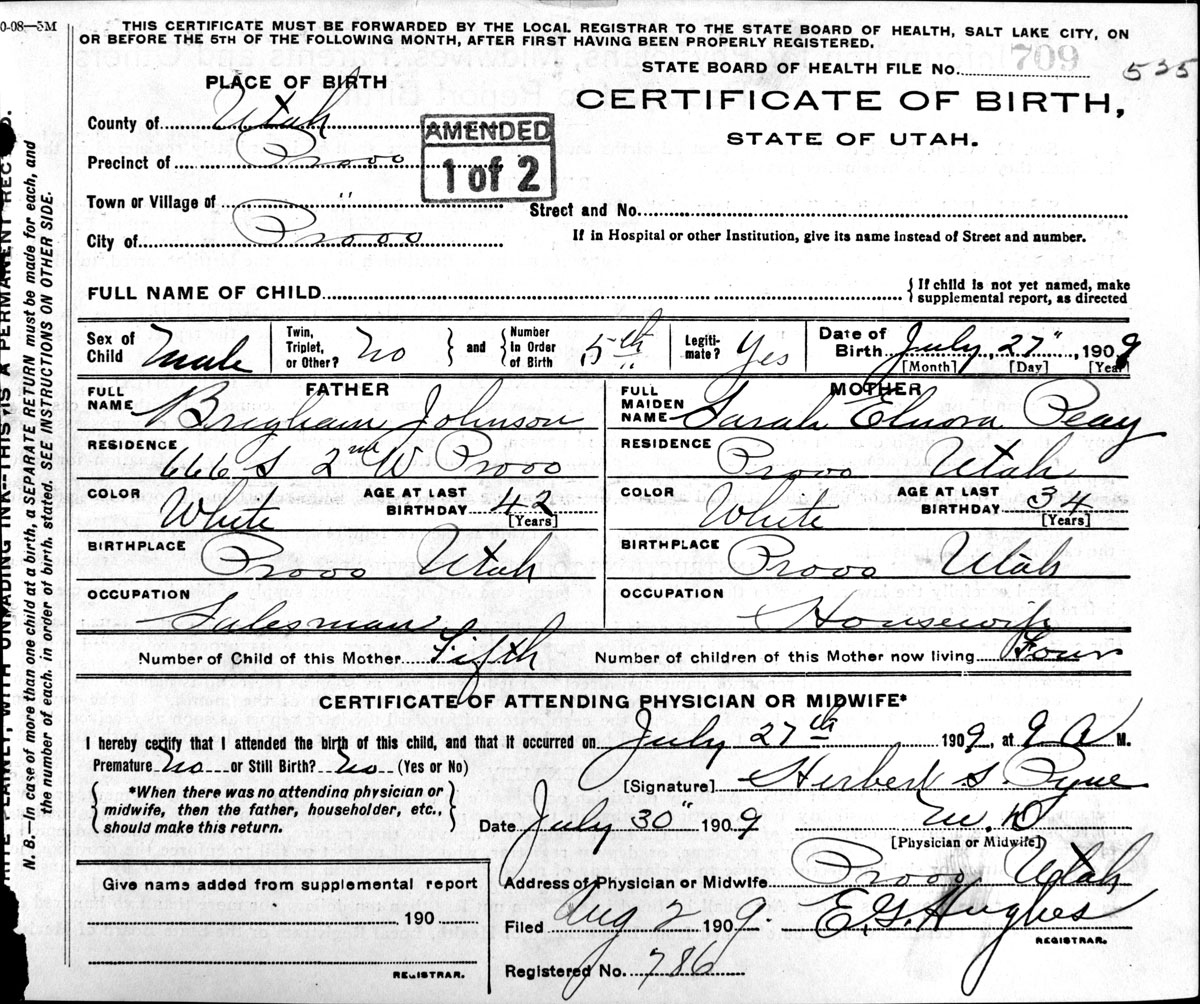 0-08—5M
THIS CERTIFICATE MUST BE FORWARDED BY THE LOCAL REGISTRAR TO THE STATE BOARD OF HEALTH, SALT LAKE CITY, ON
OR BEFORE THE 5TH OF THE FOLLOWING MONTH, AFTER FIRST HAVING BEEN PROPERLY REGISTERED.
STATE BOARD OF HEALTH FILE No. 709 535
PLACE OF BIRTH
CERTIFICATE OF BIRTH,
STATE OF UTAH.
County of Utah
AMENDED
1 of 2
Precinct of Provo
Town or Village of "
Street and No.
City of Provo
If in Hospital or other Institution, give its name instead of Street and number.
FULL NAME OF CHILD
{ If child is not yet named, make
supplemental report, as directed
Sex of Child Male
Twin, Triplet, or Other? No } and { Number In Order of Birth 5th
Legiti- mate? Yes
Date of Birth July 27", 1909
[Month] [Day] [Year]
FATHER
FULL NAME Brigham Johnson
MOTHER
FULL MAIDEN NAME Sarah Elnora Peay
RESIDENCE 666 S 2nd W Provo
RESIDENCE Provo Utah
COLOR White AGE AT LAST BIRTHDAY 42 [Years]
COLOR White AGE AT LAST BIRTHDAY 34 [Years]
BIRTHPLACE Provo Utah
BIRTHPLACE Provo Utah
OCCUPATION Salesman
OCCUPATION Housewife
Number of Child of this Mother Fifth
Number of children of this Mother now living Four
CERTIFICATE OF ATTENDING PHYSICIAN OR MIDWIFE*
I hereby certify that I attended the birth of this child, and that it occurred on July 27th 1909, at 9 A M.
Premature No or Still Birth? No (Yes or No)
[Signature] Herbert S Pyne
{ *When there was no attending physician or
midwife, then the father, householder, etc.,
should make this return. }
Date July 30" 1909
M.D
[Physician or Midwife]
Address of Physician or Midwife Provo Utah
Give name added from supplemental report
190
REGISTRAR.
Filed Aug 2 1909. E.G. Hughes
REGISTRAR.
Registered No. 786
WRITE PLAINLY, WITH UNFADING INK--THIS IS A PERMANENT REC
N. B.—In case of more than one child at a birth, a SEPARATE RETURN must be made for each, and
the number of each, in order of birth, stated. SEE INSTRUCTIONS ON OTHER SIDE.